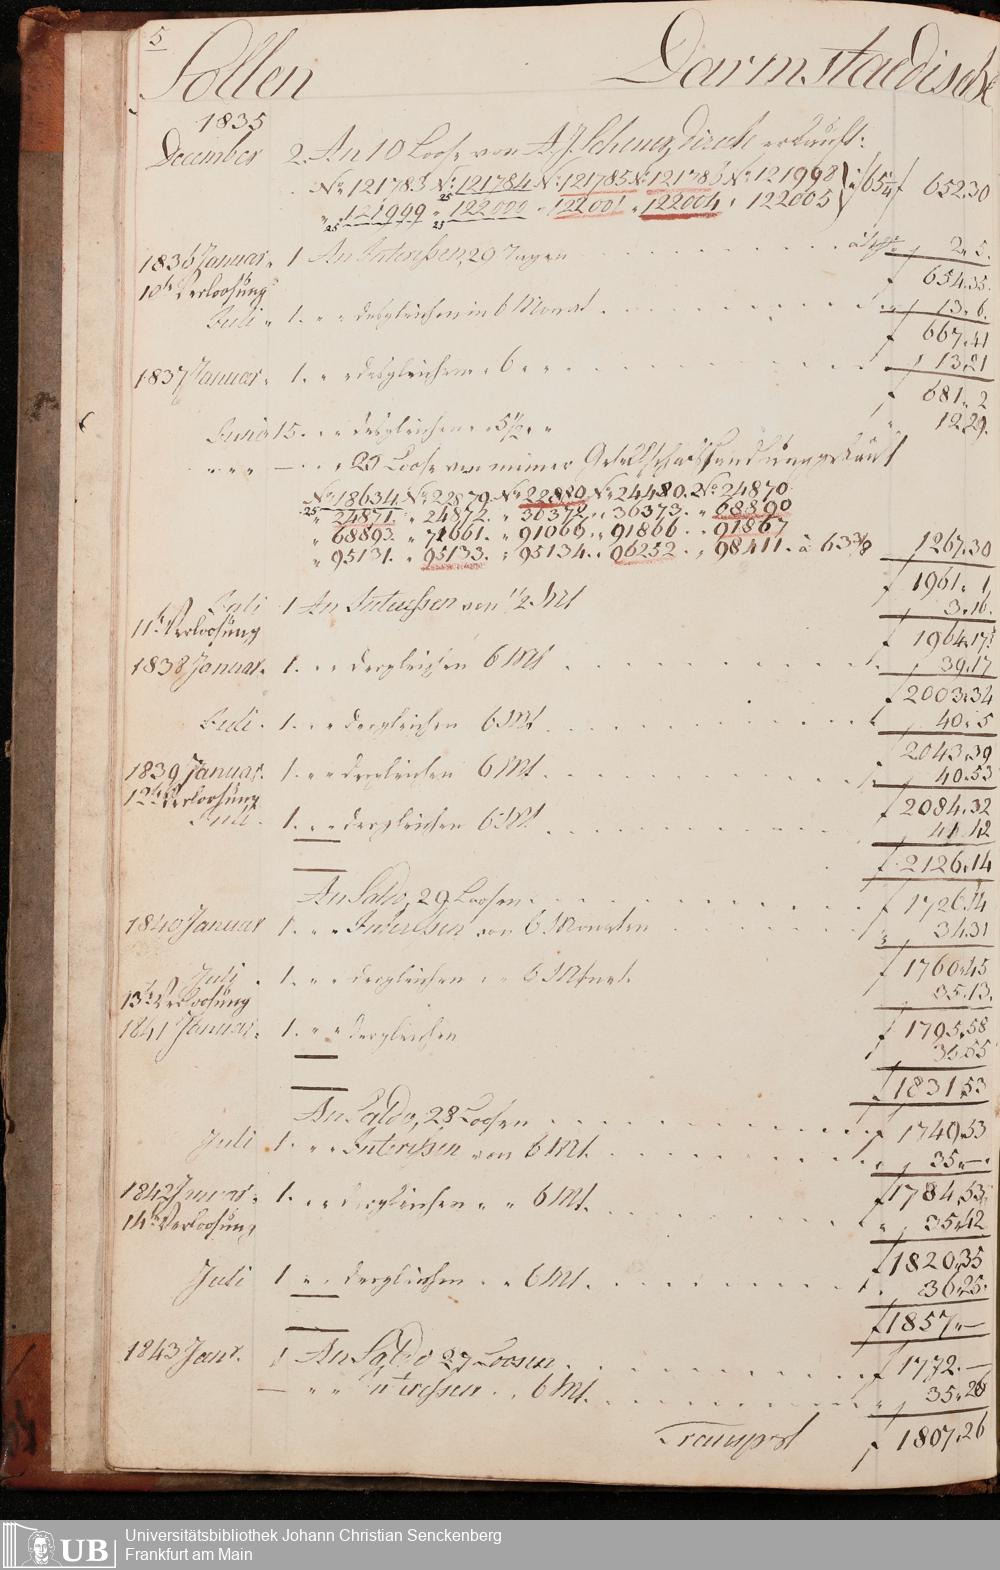 5
Sollen Darmstaedische
1835
December 2. An 10 Loose von A. J. erkauft:
No 121783 No 121784 No 121785 No 121786 No 121998 à f 65 1/4 f 652.30
" 121999 " 122000 " 122001 " 122004 " 122005
25 25
1836 Januar " 1 An Interessen, 29 Tagen f 2. 5.
f 654.35.
10te Verloosung
Juli " 1. " " desgleichen in 6 Monat f 13. 6.
f 667.41
1837 Januar. 1. " " desgleichen " 6 " " f 13.21
f 681. 2
Juni 15. " " desgleichen " " 5 1/2 " " 12.29.
" " " — " " 25 Loose von meiner Gesellschaftshandlung gekauft
No 18634 No 22879 No 22880 No 24480. No 24870
25 " 24871. " 24872. " 36372 " 36373. " 68890
" 68893. " 71661. " 91066 " 91866 " 91867
" 95131. " 95133. " 95134. " 96252 " 98411. à 63 3/8 1267.30
f 1961. 1
Juli 1 An Interessen von 1/2 Mt 3.16.
11te Verloosung
f 1964.17
1838 Januar. 1. " " desgleichen 6 Mt f 39.17
f 2003.34
Juli. 1. " " desgleichen 6 Mt 40. 5
f 2043.39
1839 Januar. 1. " " desgleichen 6 Mt f 40.53
12te Verloosung
f 2084.32
Juli. 1. " " desgleichen 6 Mt 41.42
f 2126.14
An Saldo, 29 Loosen f 1726.14
1840 Januar 1. " " Interessen von 6 Monaten 34.31
f 1760.45
Juli. 1. " " desgleichen " " 6 Monat. 35.13.
13te Verloosung
f 1795.58
1841 Januar. 1. " " desgleichen 35.55
f 1831.53
An Saldo, 28 Loosen f 1749.53
Juli 1. " " Interessen von 6 Mt. f 35.—.
f 1784.53.
1842 Januar. 1. " " desgleichen " " 6 Mt. f 35.42
14te Verloosung
f 1820.35
Juli 1 " " desgleichen " " 6 Mt. 36.25.
f 1857.—
1843 Janr. 1 An Saldo 27 Loosen f 1772.—
— " " Interessen " " 6 Mt. f 35.26
Transport f 1807.26
UB
Universitätsbibliothek Johann Christian Senckenberg
Frankfurt am Main